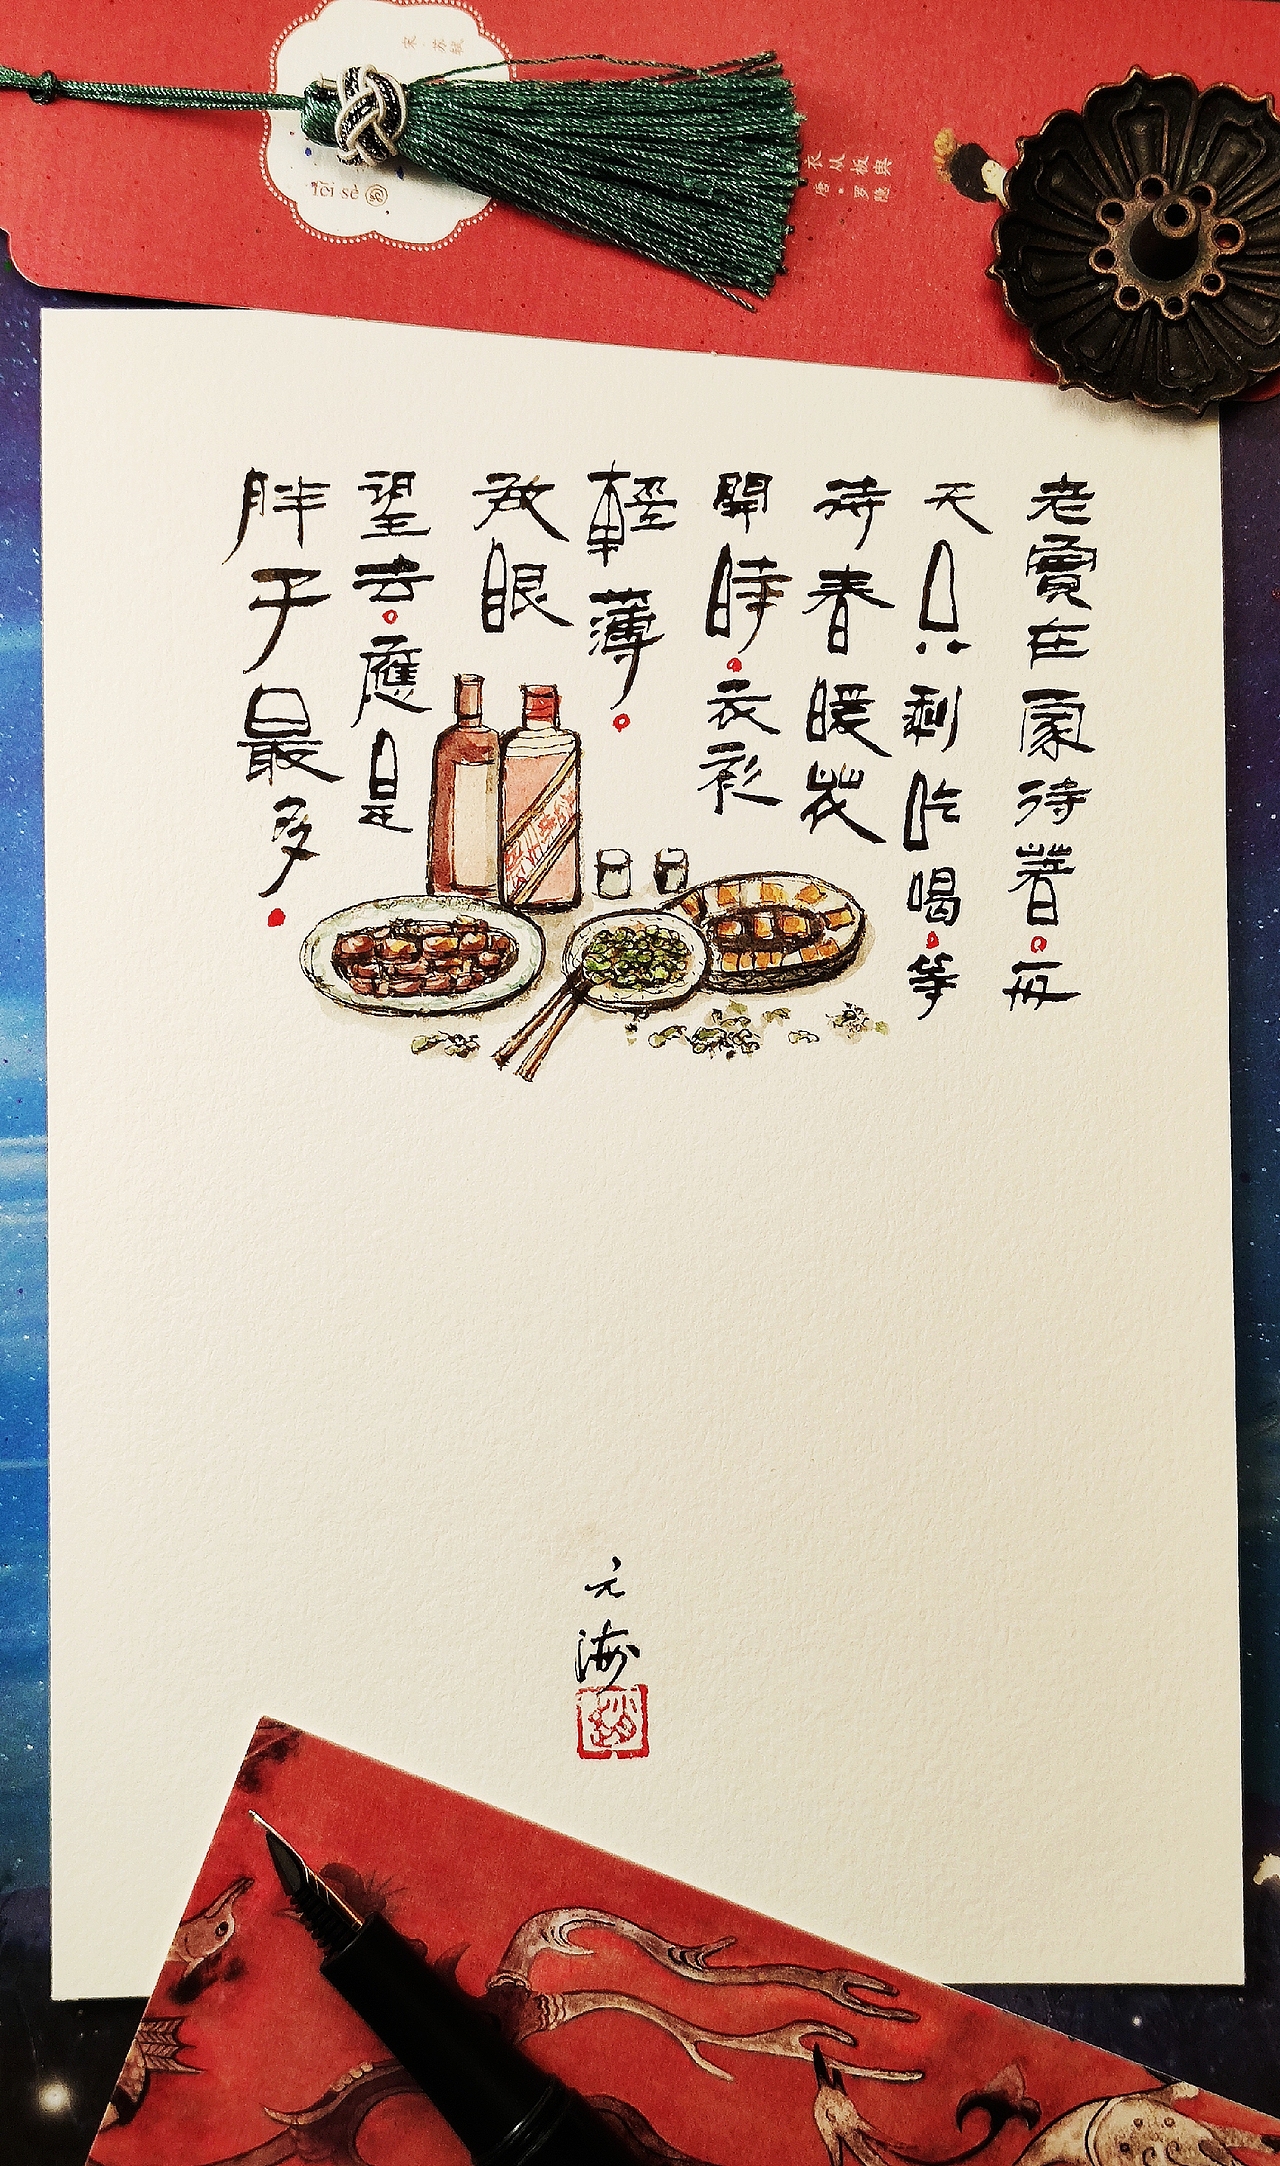 老實在家待著。每
天只剩吃喝。等
待春暖花
開時。衣衫
輕薄。
放眼
望去。應是
胖子最多。
元海
宋·苏轼
唐·罗隐